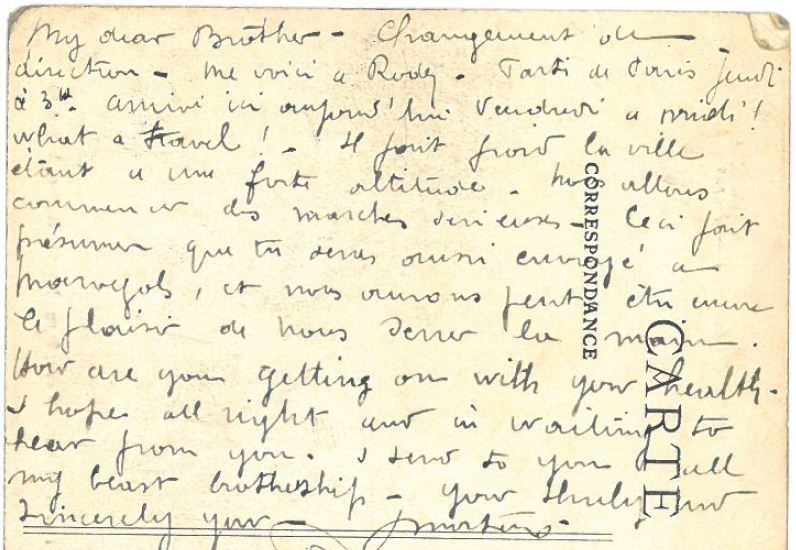 My dear Brother - Changement de
direction - me voici a Rodez - Parti de Paris jeudi
à 3h. arrivé ici aujourd'hui Vendredi a midi!
what a travel! - Il fait froid la ville
étant a une forte altitude - nous allons
commencer des marches serieuses - Ceci fait
présumer que tu seras aussi envoyé a
, et nous aurons peut être encore
le plaisir de nous serrer la main.
How are you getting on with your health -
I hope all right and in waiting to
hear from you. I send to you all
my beast brothership - your thruly and
sincerely your -
CORRESPONDANCE
CARTE